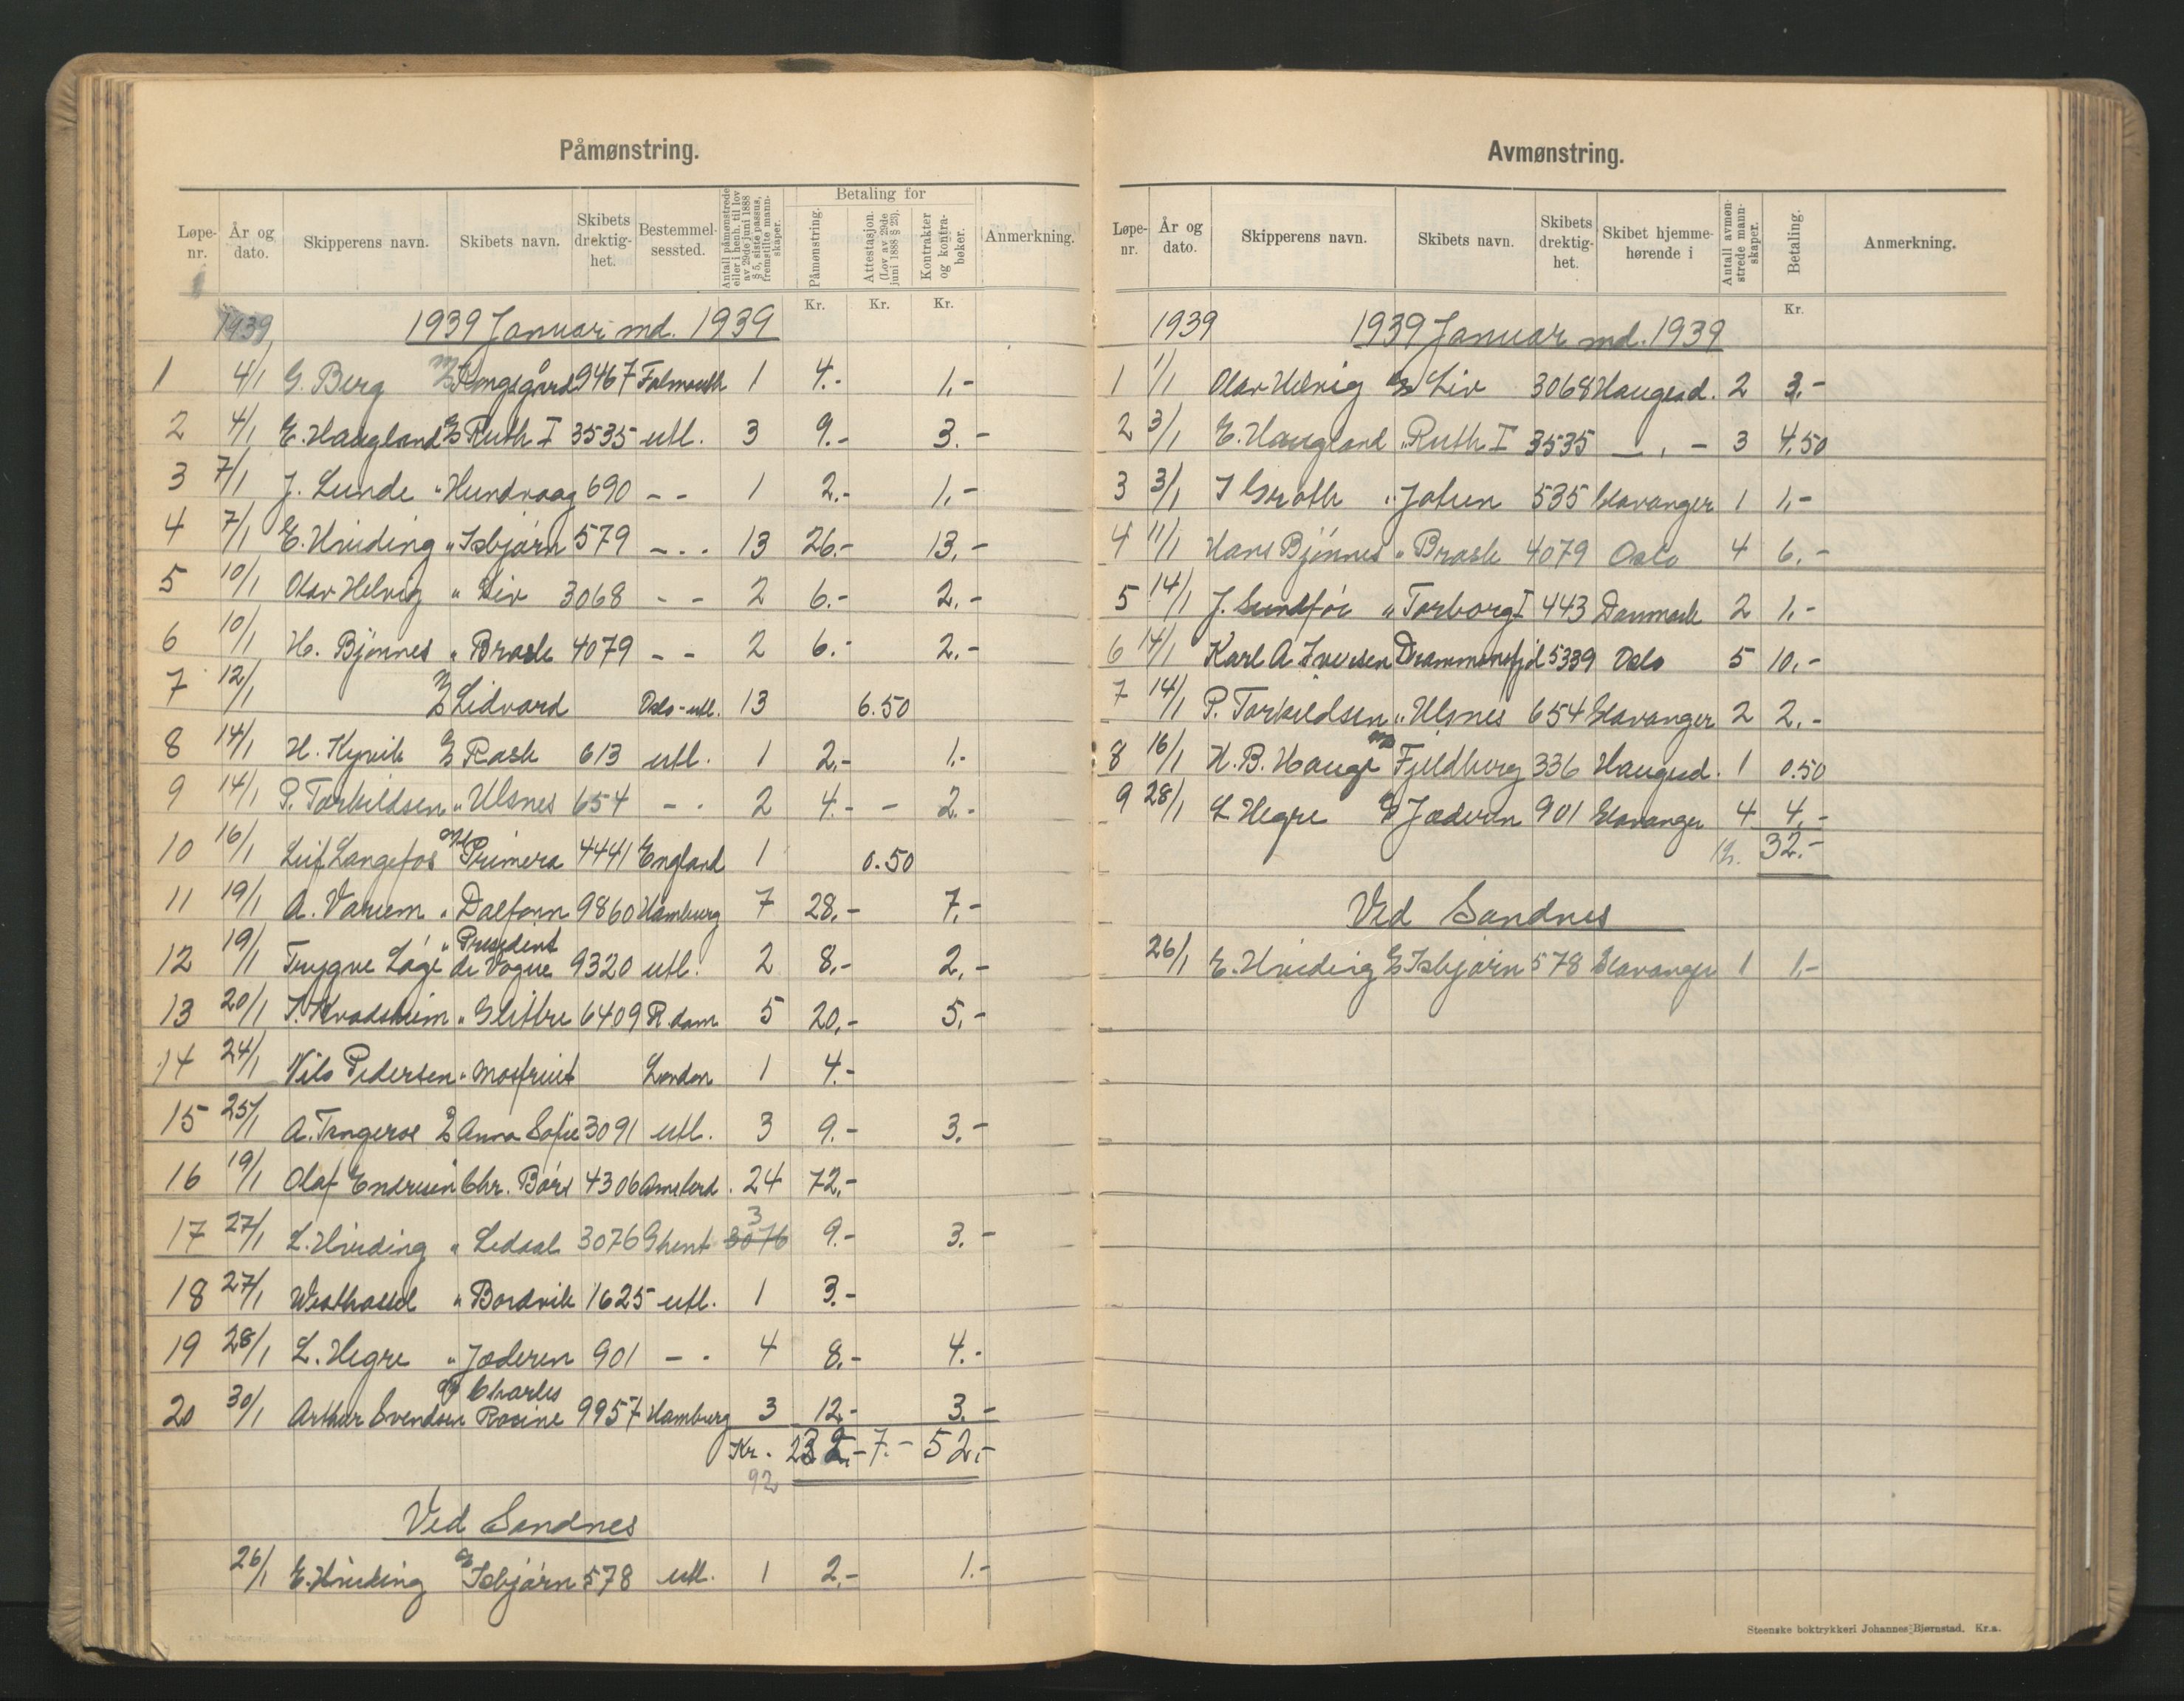 Påmønstring.
Løpe-nr. År og dato. Skipperens navn. Skibets navn. Skibets drektig-het. Bestemmel-sessted. Antall påmønstrede eller i henh. til lov av 29de juni 1888 § 5, siste passus, fremstilte mann-skaper. Betaling for Påmønstring. Attestasjon. (Lov av 29de juni 1888 § 23). Kontrakter og kontra-bøker. Anmerkning.
Kr. Kr. Kr.
1939 1939 Januar md. 1939
1 4/1 G. Berg M/S Kongsgård 9467 Falmouth 1 4.- 1,-
2 4/1 E. Haugland D/S Ruth I 3535 utl. 3 9.- 3.-
3 7/1 J. Lunde " Hundvaag 690 - - 1 2.- 1,-
4 7/1 E. Hviding " Isbjørn 579 - - 13 26.- 13.-
5 10/1 Olav Helvig " Liv 3068 - - 2 6.- 2.-
6 10/1 H. Bjønnes " Brask 4079 - - 2 6.- 2.-
7 12/1 M/S Lidvard Oslo-utl. 13 6.50
8 14/1 H. Kyvik D/S Rask 613 utl. 1 2,- 1.-
9 14/1 P. Torkildsen " Ulsnes 654 - - 2 4.- - 2.-
10 16/1 Leif Langefos M/S Primera 4441 England 1 0.50
11 19/1 A. Vareem " Dalfonn 9860 Hamburg 7 28,- 7,-
12 19/1 Trygve Låge " President de Vogue 9320 utl. 2 8,- 2,-
13 20/1 I. Kvadsheim " Glittre 6409 R.dam 5 20,- 5,-
14 24/1 Nils Pedersen " Mosfruit London 1 4.-
15 25/1 A. Tangeros D/S Anna Sofie 3091 utl. 3 9.- 3.-
16 19/1 Olaf Endresen Chr. Børs 4306 Amsterd. 24 72,-
17 27/1 L. Hviding " Ledaal 3076 Ghent 3076 3 9.- 3.-
18 27/1 Westhassel " Bordvik 1625 utl. 1 3.-
19 28/1 L. Hegre " Jæderen 901 - - 4 8,- 4.-
20 30/1 Arthur Svendsen M/S Charles Racine 9957 Hamburg 3 12.- 3.-
Kr. 232.- 7.- 52,-
92
Ved Sandnes
26/1 E. Hviding D/S Isbjørn 578 utl. 1 2,- 1.-
Avmønstring.
Løpe-nr. År og dato. Skipperens navn. Skibets navn. Skibets drektig-het. Skibet hjemme-hørende i Antall avmøn-strede mann-skaper. Betaling. Anmerkning.
Kr.
1939 1939 Januar md. 1939
1 1/1 Olav Helvig D/S Liv 3068 Haugesd. 2 3.-
2 3/1 E. Haugland " Ruth I 3535 - " - 3 4.50
3 3/1 I Groth " Jotun 535 Stavanger 1 1,-
4 11/1 Hans Bjönnes " Brask 4079 Oslo 4 6,-
5 14/1 J. Sundför " Torborg I 443 Danmark 2 1,-
6 14/1 Karl A Iversen Drammensfjd 5339 Oslo 5 10,-
7 14/1 P. Torkildsen " Ulsnes 654 Stavanger 2 2,-
8 16/1 K. B. Hauge M/S Fjeldberg 336 Haugesd. 1 0.50
9 28/1 L Hegre D/S Jæderen 901 Stavanger 4 4,-
Kr. 32.-
Ved Sandnes
26/1 E. Hviding D/S Isbjørn 578 Stavanger 1 1,-
Steenske boktrykkeri Johannes Bjørnstad. Kr.a.